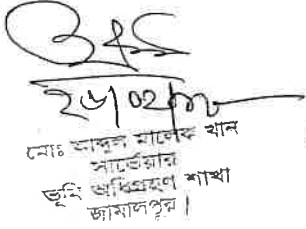 ২৬/০২/২০
মোঃ আব্দুল মালেক খান
সার্ভেয়ার
ভূমি অধিগ্রহণ শাখা
জামালপুর।